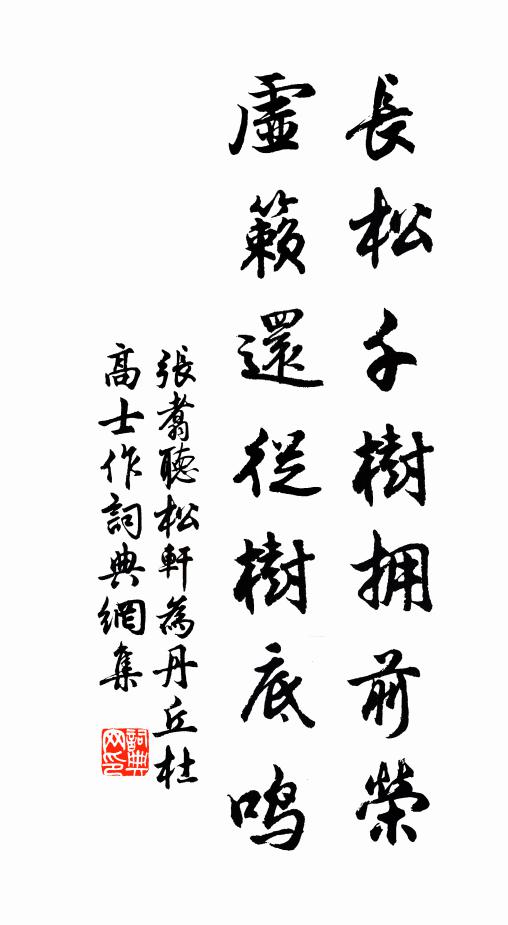 長松千樹拥前榮
虛籟還從樹底鸣
張翥聽松軒為丹丘杜
高士作詞典網集
詞典網印